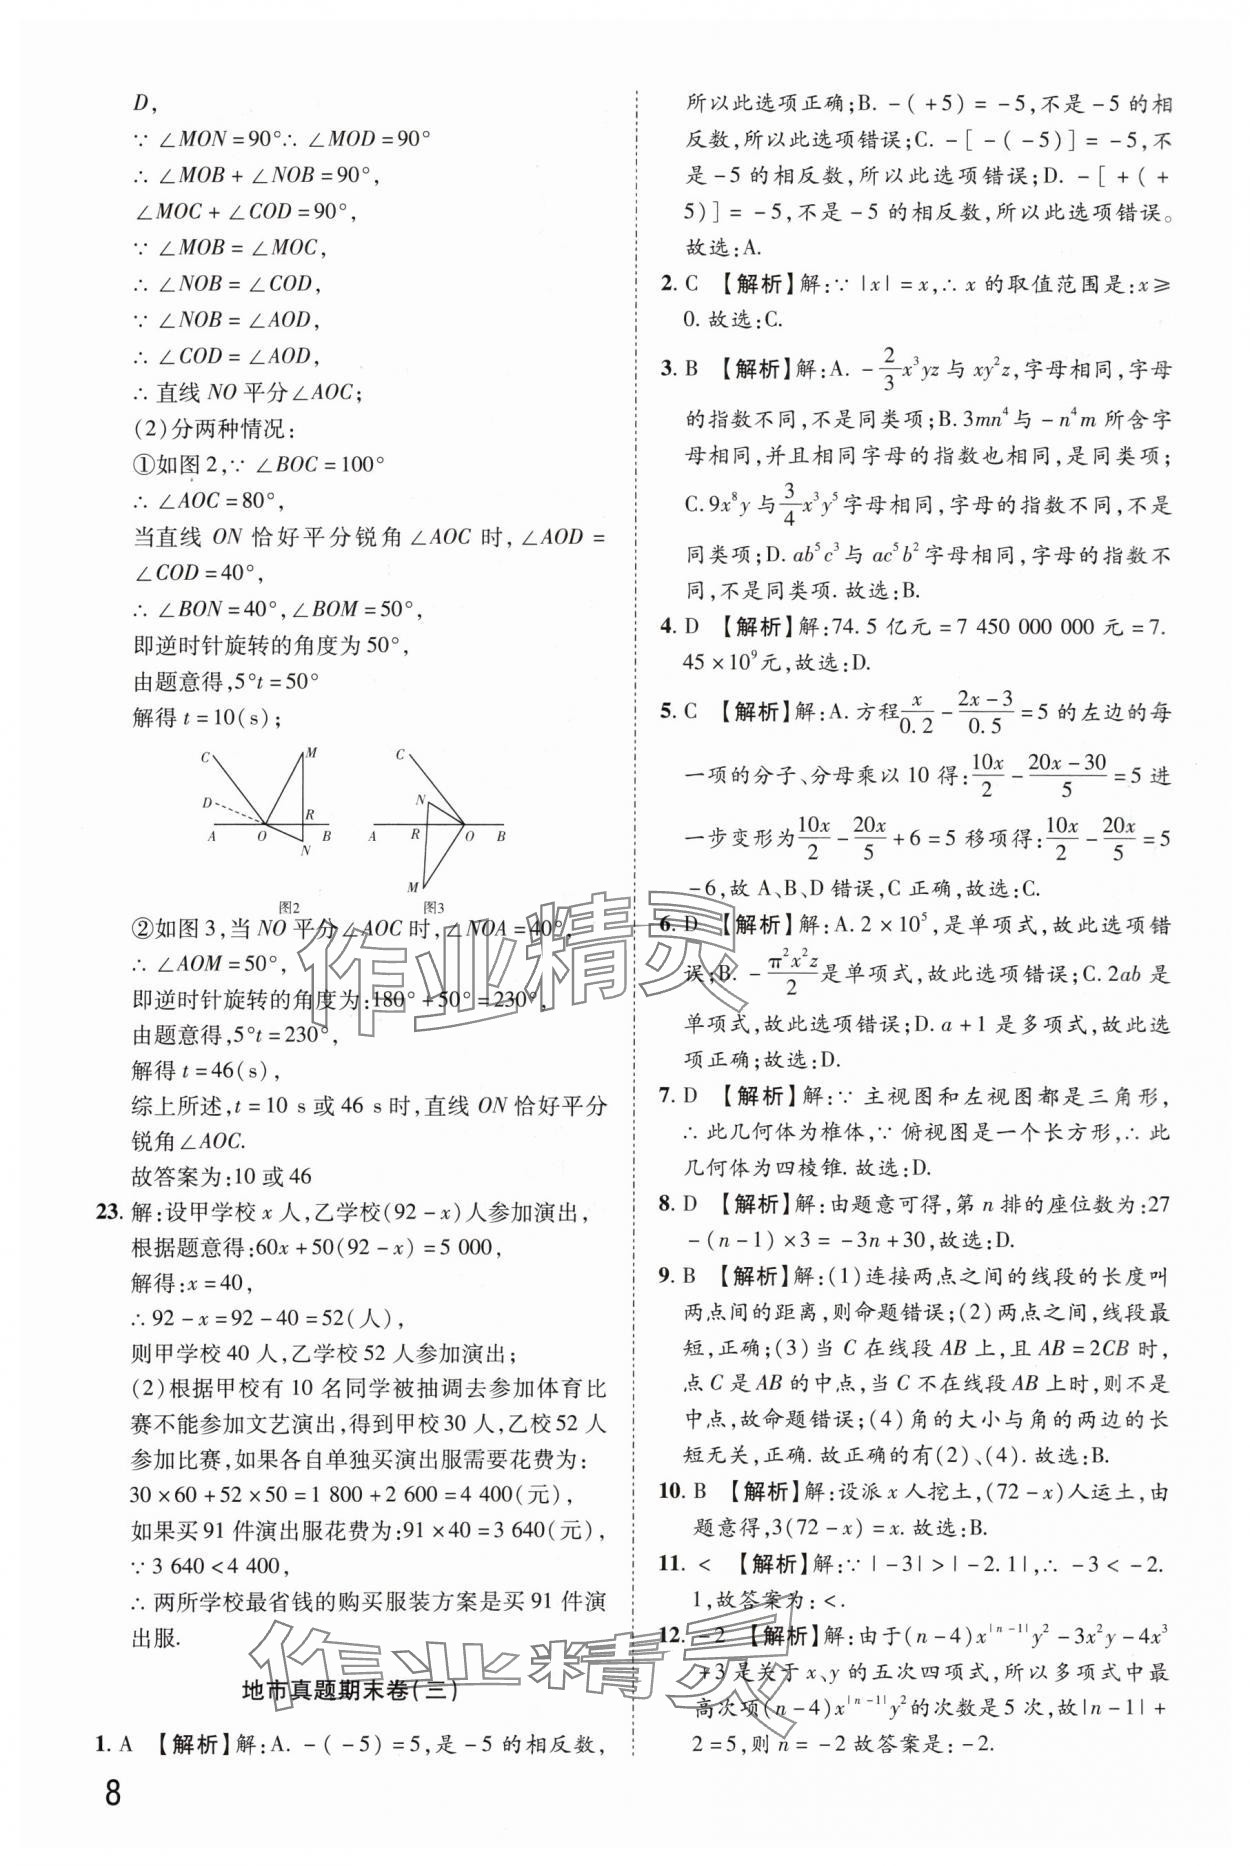 D,
∵ ∠MON = 90°∴ ∠MOD = 90°
∴ ∠MOB + ∠NOB = 90°,
∠MOC + ∠COD = 90°,
∵ ∠MOB = ∠MOC,
∴ ∠NOB = ∠COD,
∵ ∠NOB = ∠AOD,
∴ ∠COD = ∠AOD,
∴ 直线 NO 平分∠AOC;
(2)分两种情况:
①如图 2,∵ ∠BOC = 100°
∴ ∠AOC = 80°,
当直线 ON 恰好平分锐角∠AOC 时,∠AOD =
∠COD = 40°,
∴ ∠BON = 40°,∠BOM = 50°,
即逆时针旋转的角度为 50°,
由题意得,5°t = 50°
解得 t = 10(s);
C M D R A O B N
图2
C N A R O B M
图3
②如图 3,当 NO 平分∠AOC 时,∠NOA = 40°,
∴ ∠AOM = 50°,
即逆时针旋转的角度为:180° + 50° = 230°,
由题意得,5°t = 230°,
解得 t = 46(s),
综上所述,t = 10 s 或 46 s 时,直线 ON 恰好平分
锐角∠AOC.
故答案为:10 或 46
23. 解:设甲学校 x 人,乙学校(92 - x)人参加演出,
根据题意得:60x + 50(92 - x) = 5 000,
解得:x = 40,
∴ 92 - x = 92 - 40 = 52(人),
则甲学校 40 人,乙学校 52 人参加演出;
(2)根据甲校有 10 名同学被抽调去参加体育比
赛不能参加文艺演出,得到甲校 30 人,乙校 52 人
参加比赛,如果各自单独买演出服需要花费为:
30 × 60 + 52 × 50 = 1 800 + 2 600 = 4 400(元),
如果买 91 件演出服花费为:91 × 40 = 3 640(元),
∵ 3 640 < 4 400,
∴ 两所学校最省钱的购买服装方案是买 91 件演
出服.
地市真题期末卷(三)
1. A 【解析】解:A. - ( - 5) = 5,是 - 5 的相反数,
8
所以此选项正确;B. - ( + 5) = - 5,不是 - 5 的相
反数,所以此选项错误;C. - [ - ( - 5)] = - 5,不
是 - 5 的相反数,所以此选项错误;D. - [ + ( +
5)] = - 5,不是 - 5 的相反数,所以此选项错误。
故选:A.
2. C 【解析】解:∵ |x| = x,∴ x 的取值范围是:x ≥
0. 故选:C.
3. B 【解析】解:A. -\frac{2}{3}x³yz 与 xy²z,字母相同,字母
的指数不同,不是同类项;B. 3mn⁴ 与 - n⁴m 所含字
母相同,并且相同字母的指数也相同,是同类项;
C. 9x⁸y 与 \frac{3}{4}x³y⁵ 字母相同,字母的指数不同,不是
同类项;D. ab⁵c³ 与 ac⁵b² 字母相同,字母的指数不
同,不是同类项. 故选:B.
4. D 【解析】解:74. 5 亿元 = 7 450 000 000 元 = 7.
45 × 10⁹元,故选:D.
5. C 【解析】解:A. 方程\frac{x}{0.2} - \frac{2x-3}{0.5} = 5 的左边的每
一项的分子、分母乘以 10 得:\frac{10x}{2} - \frac{20x-30}{5} = 5 进
一步变形为\frac{10x}{2} - \frac{20x}{5} + 6 = 5 移项得:\frac{10x}{2} - \frac{20x}{5} = 5
- 6,故 A、B、D 错误,C 正确,故选:C.
6. D 【解析】解:A. 2 × 10⁵,是单项式,故此选项错
误;B. -\frac{π²x²z}{2}是单项式,故此选项错误;C. 2ab 是
单项式,故此选项错误;D. a + 1 是多项式,故此选
项正确;故选:D.
7. D 【解析】解:∵ 主视图和左视图都是三角形,
∴ 此几何体为椎体,∵ 俯视图是一个长方形,∴ 此
几何体为四棱锥. 故选:D.
8. D 【解析】解:由题意可得,第 n 排的座位数为:27
- (n - 1) × 3 = - 3n + 30,故选:D.
9. B 【解析】解:(1)连接两点之间的线段的长度叫
两点间的距离,则命题错误;(2)两点之间,线段最
短,正确;(3)当 C 在线段 AB 上,且 AB = 2CB 时,
点 C 是 AB 的中点,当 C 不在线段 AB 上时,则不是
中点,故命题错误;(4)角的大小与角的两边的长
短无关,正确. 故正确的有(2)、(4). 故选:B.
10. B 【解析】解:设派 x 人挖土,(72 - x)人运土,由
题意得,3(72 - x) = x. 故选:B.
11. < 【解析】解:∵ | - 3| > | - 2. 1|,∴ - 3 < - 2.
1,故答案为:<.
12. - 2 【解析】解:由于(n - 4)x^{|n-1|}y² - 3x²y - 4x³
+ 3 是关于 x、y 的五次四项式,所以多项式中最
高次项(n - 4)x^{|n-1|}y²的次数是 5 次,故|n - 1| +
2 = 5,则 n = - 2 故答案是: - 2.
作业精灵
作业精灵